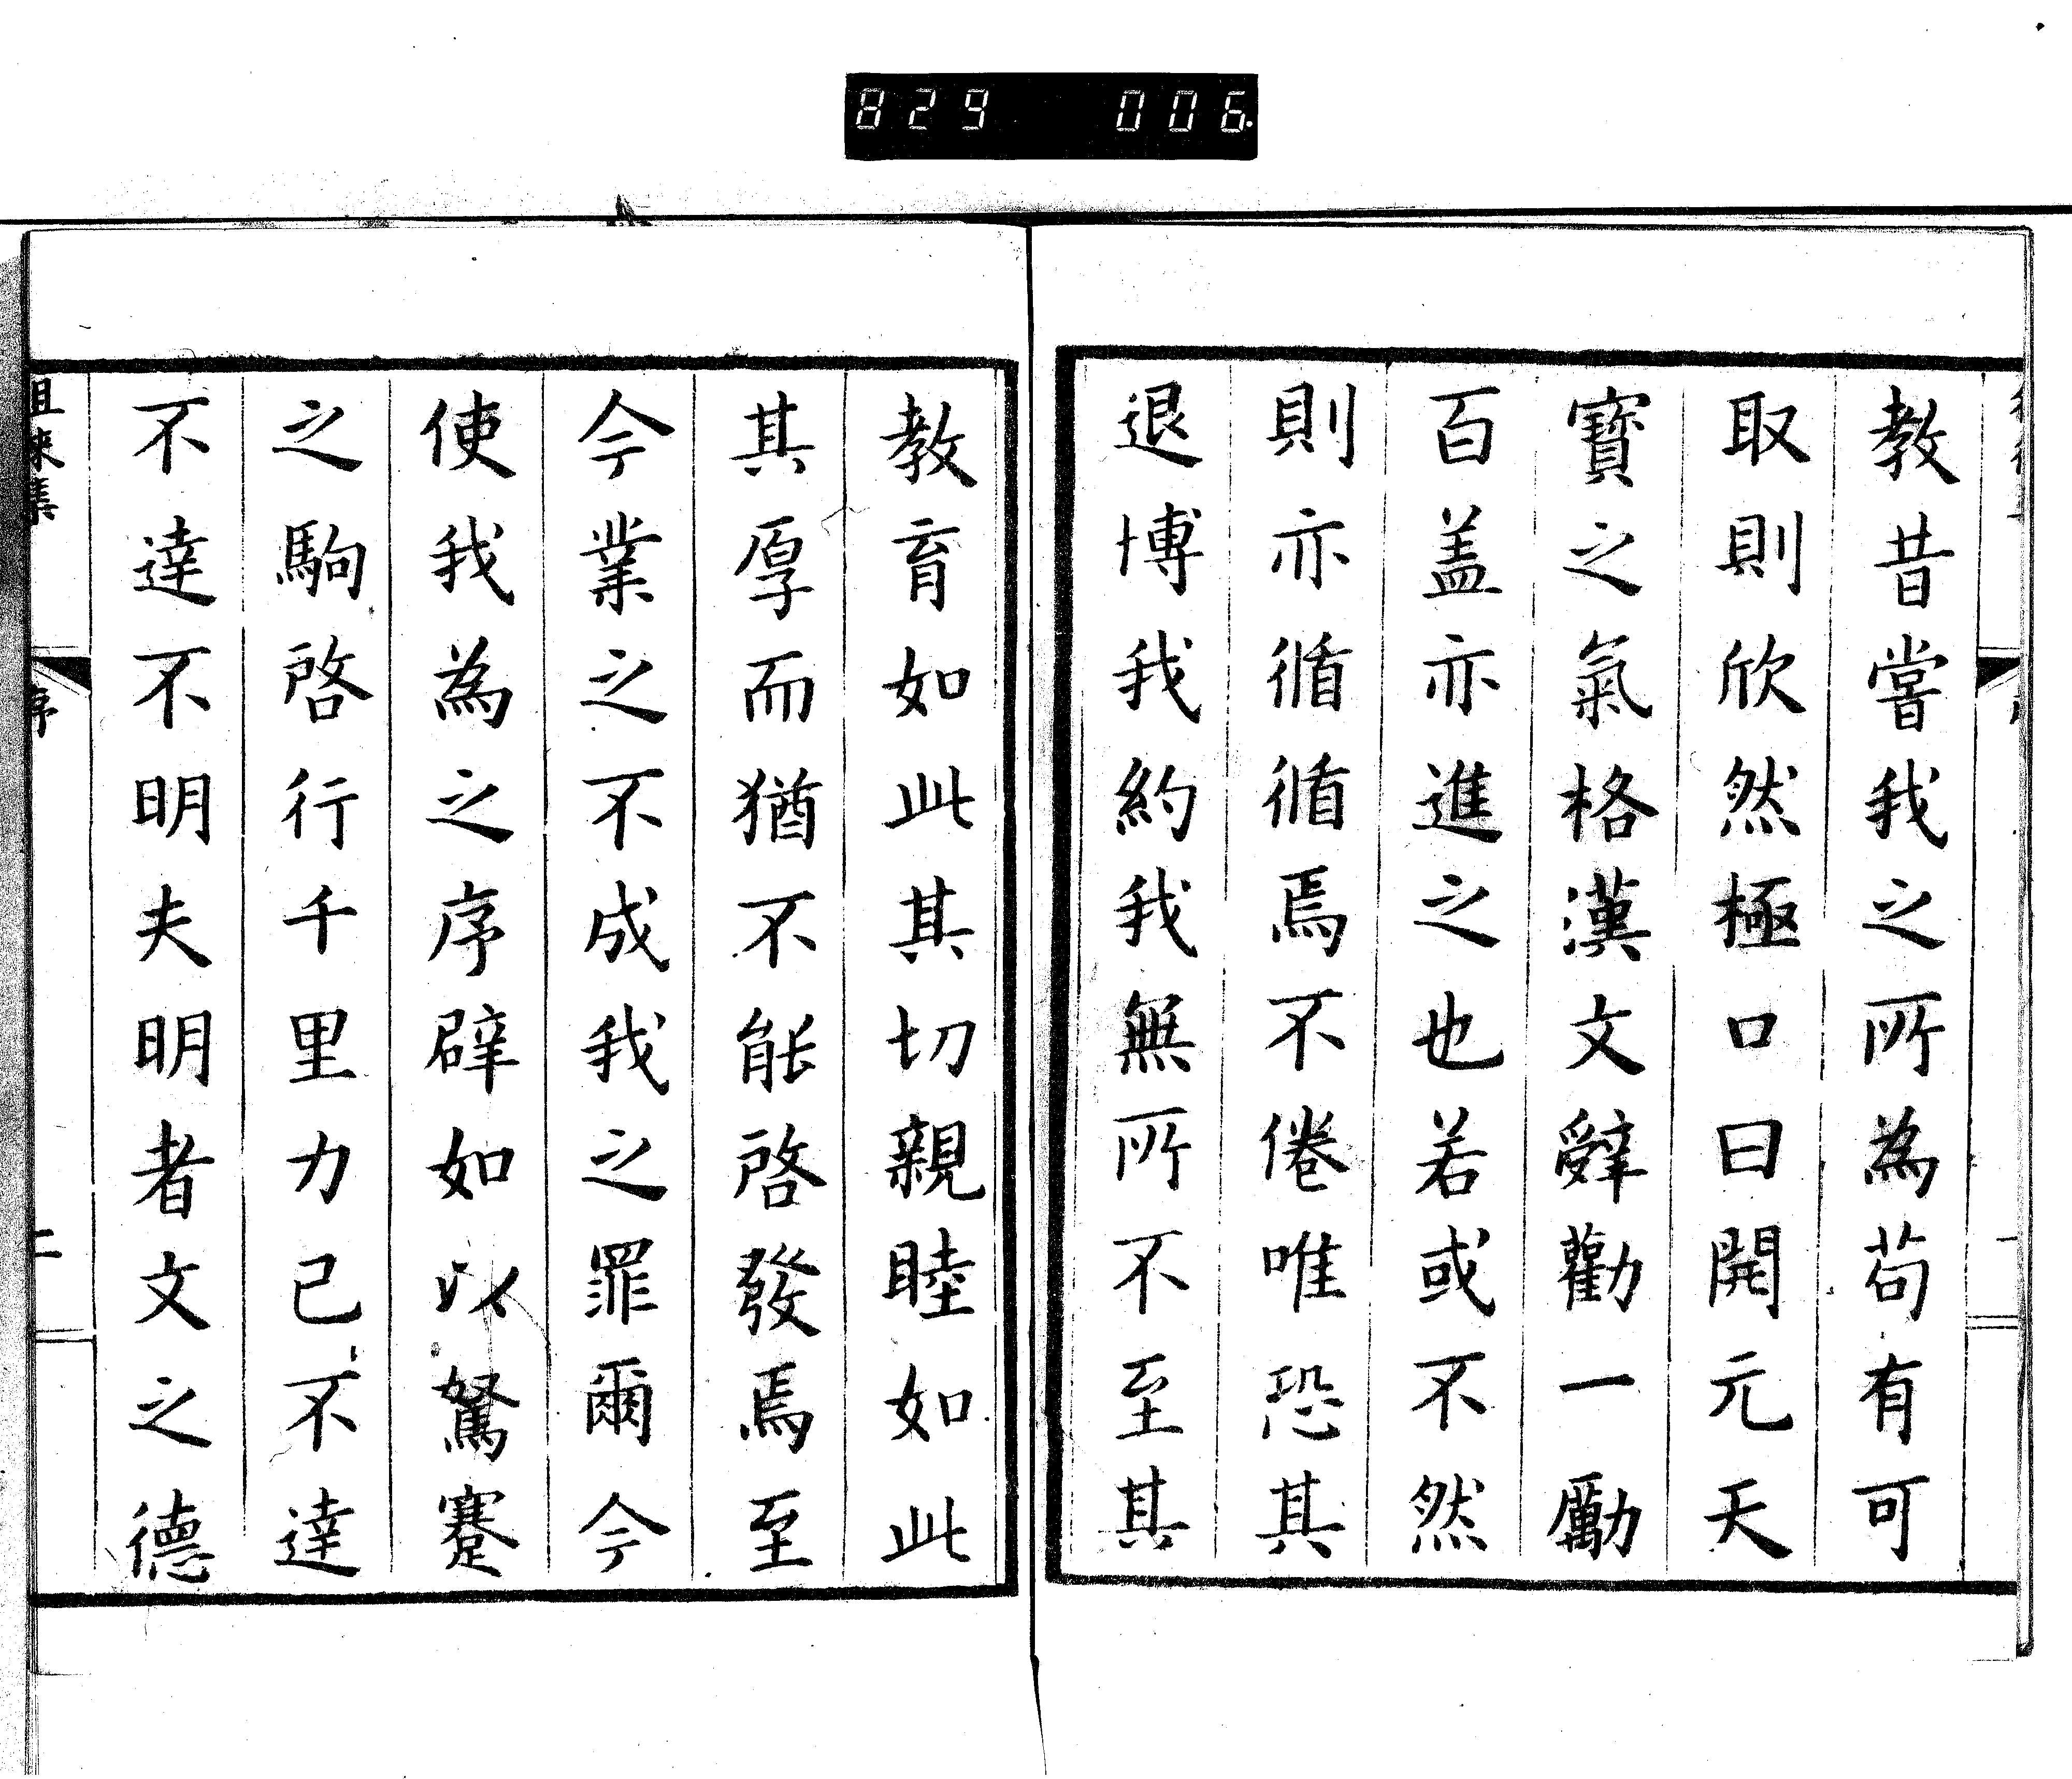 829 006.
教昔嘗我之所為苟有可
取則欣然極口曰開元天
寶之氣格漢文辭勸一勵
百盖亦進之也若或不然
則亦循循焉不倦唯恐其
退博我約我無所不至其
教育如此其切親睦如此
其厚而猶不能啓發焉至
今業之不成我之罪爾今
使我為之序辟如以駑蹇
之駒啓行千里力已不達
不達不明夫明者文之德
徂徠集
序
二